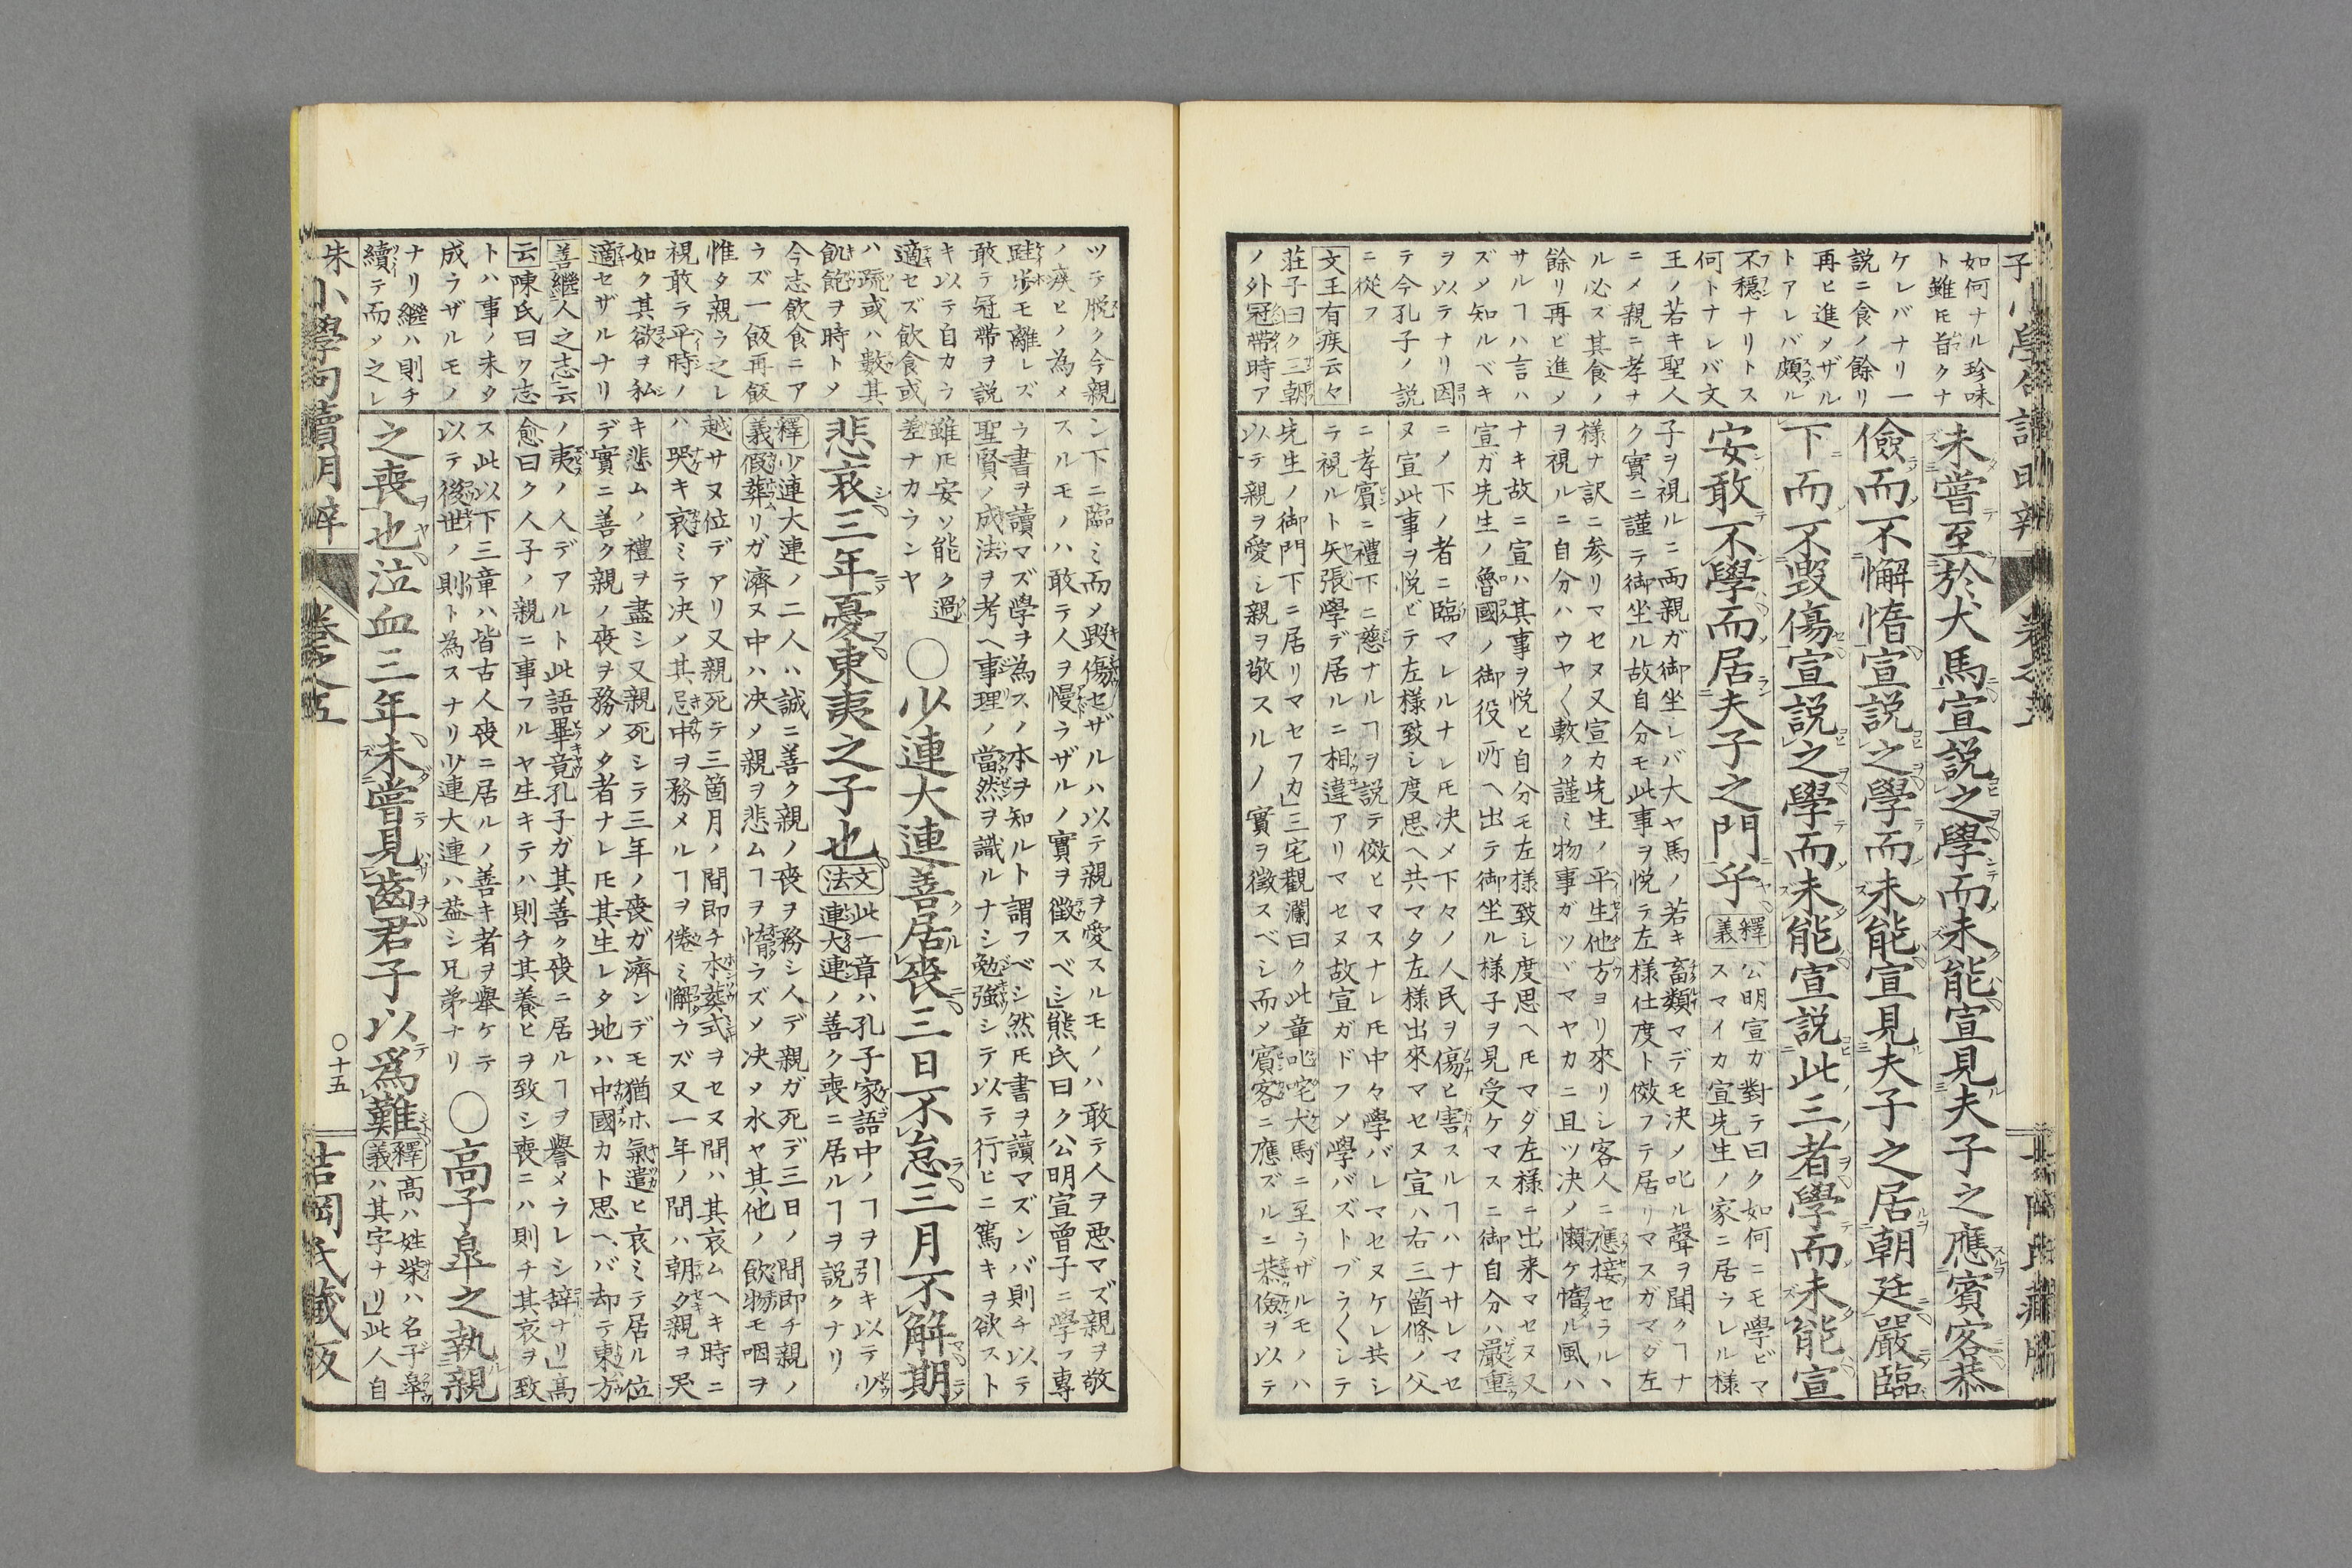 如何ナル珍味
ト雖𪜈旨クナ
ケレバナリ一
説ニ食ノ餘リ
再ヒ進メザル
トアレバ頗ル
不穩ナリトス
何トナレバ文
王ノ若キ聖人
ニメ親ニ孝ナ
ル必ズ其食ノ
餘リ再ビ進メ
サルヿハ言ハ
ズメ知ルベキ
ヲ以テナリ因
テ今孔子ノ説
ニ從フ
文王有疾云々
莊子曰ク三朝
ノ外冠帶時ア
未嘗至於犬馬宣説之學而未能宣見夫子之應賓客恭
儉而不懈惰宣説之學而未能宣見夫子之居朝廷嚴臨
下而不毀傷宣説之學而未能宣説此三者學而未能宣
安敢不學而居夫子之門乎
釋義
公明宣ガ對テ曰ク如何ニモ學ビマ
スマイカ宣先生ノ家ニ居ラレル様
子ヲ視ルニ両親ガ御坐レバ大ヤ馬ノ若キ畜類マデモ决メ叱ル聲ヲ聞クヿナ
ク實ニ謹テ御坐ル故自分モ此事ヲ悦テ左様仕度ト傚フテ居リマスガマダ左
様ナ訳ニ参リマセヌ又宣カ先生ノ平生他方ヨリ來リシ客人ニ應接セラル丶
ヲ視ルニ自分ハウヤ〱敷ク謹ミ物事ガツヾマヤカニ且ツ决ノ懶ケ惰ル風ハ
ナキ故ニ宣ハ其事ヲ悦ヒ自分モ左様致シ度思ヘ𪜈マダ左様ニ出来マセヌ又
宣ガ先生ノ魯國ノ御役所ヘ出テ御坐ル様子ヲ見受ケマスニ御自分ハ嚴重
ニノ下ノ者ニ臨マレルナレ𪜈决メ下々ノ人民ヲ傷ヒ害スルヿハナサレマセ
ヌ宣此事ヲ悦ビテ左様致シ度思ヘ共マタ左様出來マセヌ宣ハ右三箇條ノ父
ニ孝賓ニ禮下ニ慈ナルヿヲ説テ傚ヒマスナレ𪜈中々學バレマセヌケレ共シ
ラ視ルト矢張學デ居ルニ相違アリマセヌ故宣ガドフメ學バズトブラ〱シテ
先生ノ御門下ニ居リマセフカ」三宅觀瀾曰ク此章叱咤犬馬ニ至ラザルモノハ
以テ親ヲ愛シ親ヲ敬スルノ實ヲ徴スベシ而メ賓客ニ應ズルニ恭儉ヲ以テ
ツテ脱ク今親
ノ疾ヒノ為メ
跬歩モ離レズ
敢テ冠帶ヲ説
キ以テ自カラ
適セズ飲食或
ハ疏或ハ數其
飢飽ヲ時トメ
今志飲食ニア
ラズ一飯再飯
惟タ親ラ之レ
視敢テ平時ノ
如ク其欲ヲ私
適セザルナリ
善繼人之志云
云陳氏曰ク志
トハ事ノ未タ
成ラザルモノ
ナリ繼ハ則チ
續テ而メ之レ
ン下ニ臨ミ而メ毀傷セザルハ以テ親ヲ愛スルモノハ敢テ人ヲ悪マズ親ヲ敬
スルモノハ敢テ人ヲ慢ラザルノ實ヲ徴スベシ」熊氏曰ク公明宣曾子ニ學フ專
ラ書ヲ讀マズ學ヲ為スノ本ヲ知ルト謂フベシ然𪜈書ヲ讀マズンバ則チ以テ
聖賢ノ成法ヲ考ヘ事理ノ當然ヲ識ルナシ勉強シテ以テ行ヒニ篤キヲ欲スト
雖𪜈安ソ能ク過
差ナカランヤ
〇少連大連善居喪三日不怠三月不解期
悲哀三年憂東夷之子也
文法
此一章ハ孔子家語中ノヿヲ引キ以テ少
連大連ノ善ク喪ニ居ルヿヲ説クナリ
釋義
少連大連ノ二人ハ誠ニ善ク親ノ喪ヲ務シ人デ親ガ死デ三日ノ間即チ親ノ
假葬リガ濟ヌ中ハ决メ親ヲ悲ムヿヲ惰ラズメ决メ水ヤ其他ノ飲物モ咽ヲ
越サヌ位デアリ又親死テ三箇月ノ間即チ本葬式ヲセヌ間ハ其哀ムヘキ時ニ
ハ哭キ哀ミテ决メ其忌中ヲ務メルヿヲ倦ミ懈ウズ又一年ノ間ハ朝夕親ヲ哭
キ悲ムノ禮ヲ盡シ又親死シテ三年ノ喪ガ濟ンデモ猶ホ氣遣ヒ哀ミテ居ル位
デ實ニ善ク親ノ喪ヲ務メタ者ナレ𪜈其生レタ地ハ中國カト思ヘバ却テ東方
ノ夷ノ人デアルト此語畢竟孔子ガ其善ク喪ニ居ルヿヲ譽メラレシ辞ナリ」高
愈曰ク人子ノ親ニ事フルヤ生キテハ則チ其養ヒヲ致シ喪ニハ則チ其哀ヲ致
ス此以下三章ハ皆古人喪ニ居ルノ善キ者ヲ舉ケテ
以テ後世ノ則ト為スナリ少連大連ハ葢シ兄弟ナリ
〇高子皐之執親
之喪也泣血三年未嘗見齒君子以爲難
釋義
高ハ姓柴ハ名子皐
ハ其字ナリ」此人自
朱
小學句讀明辨
卷之五
〇十五
吉岡氏藏版